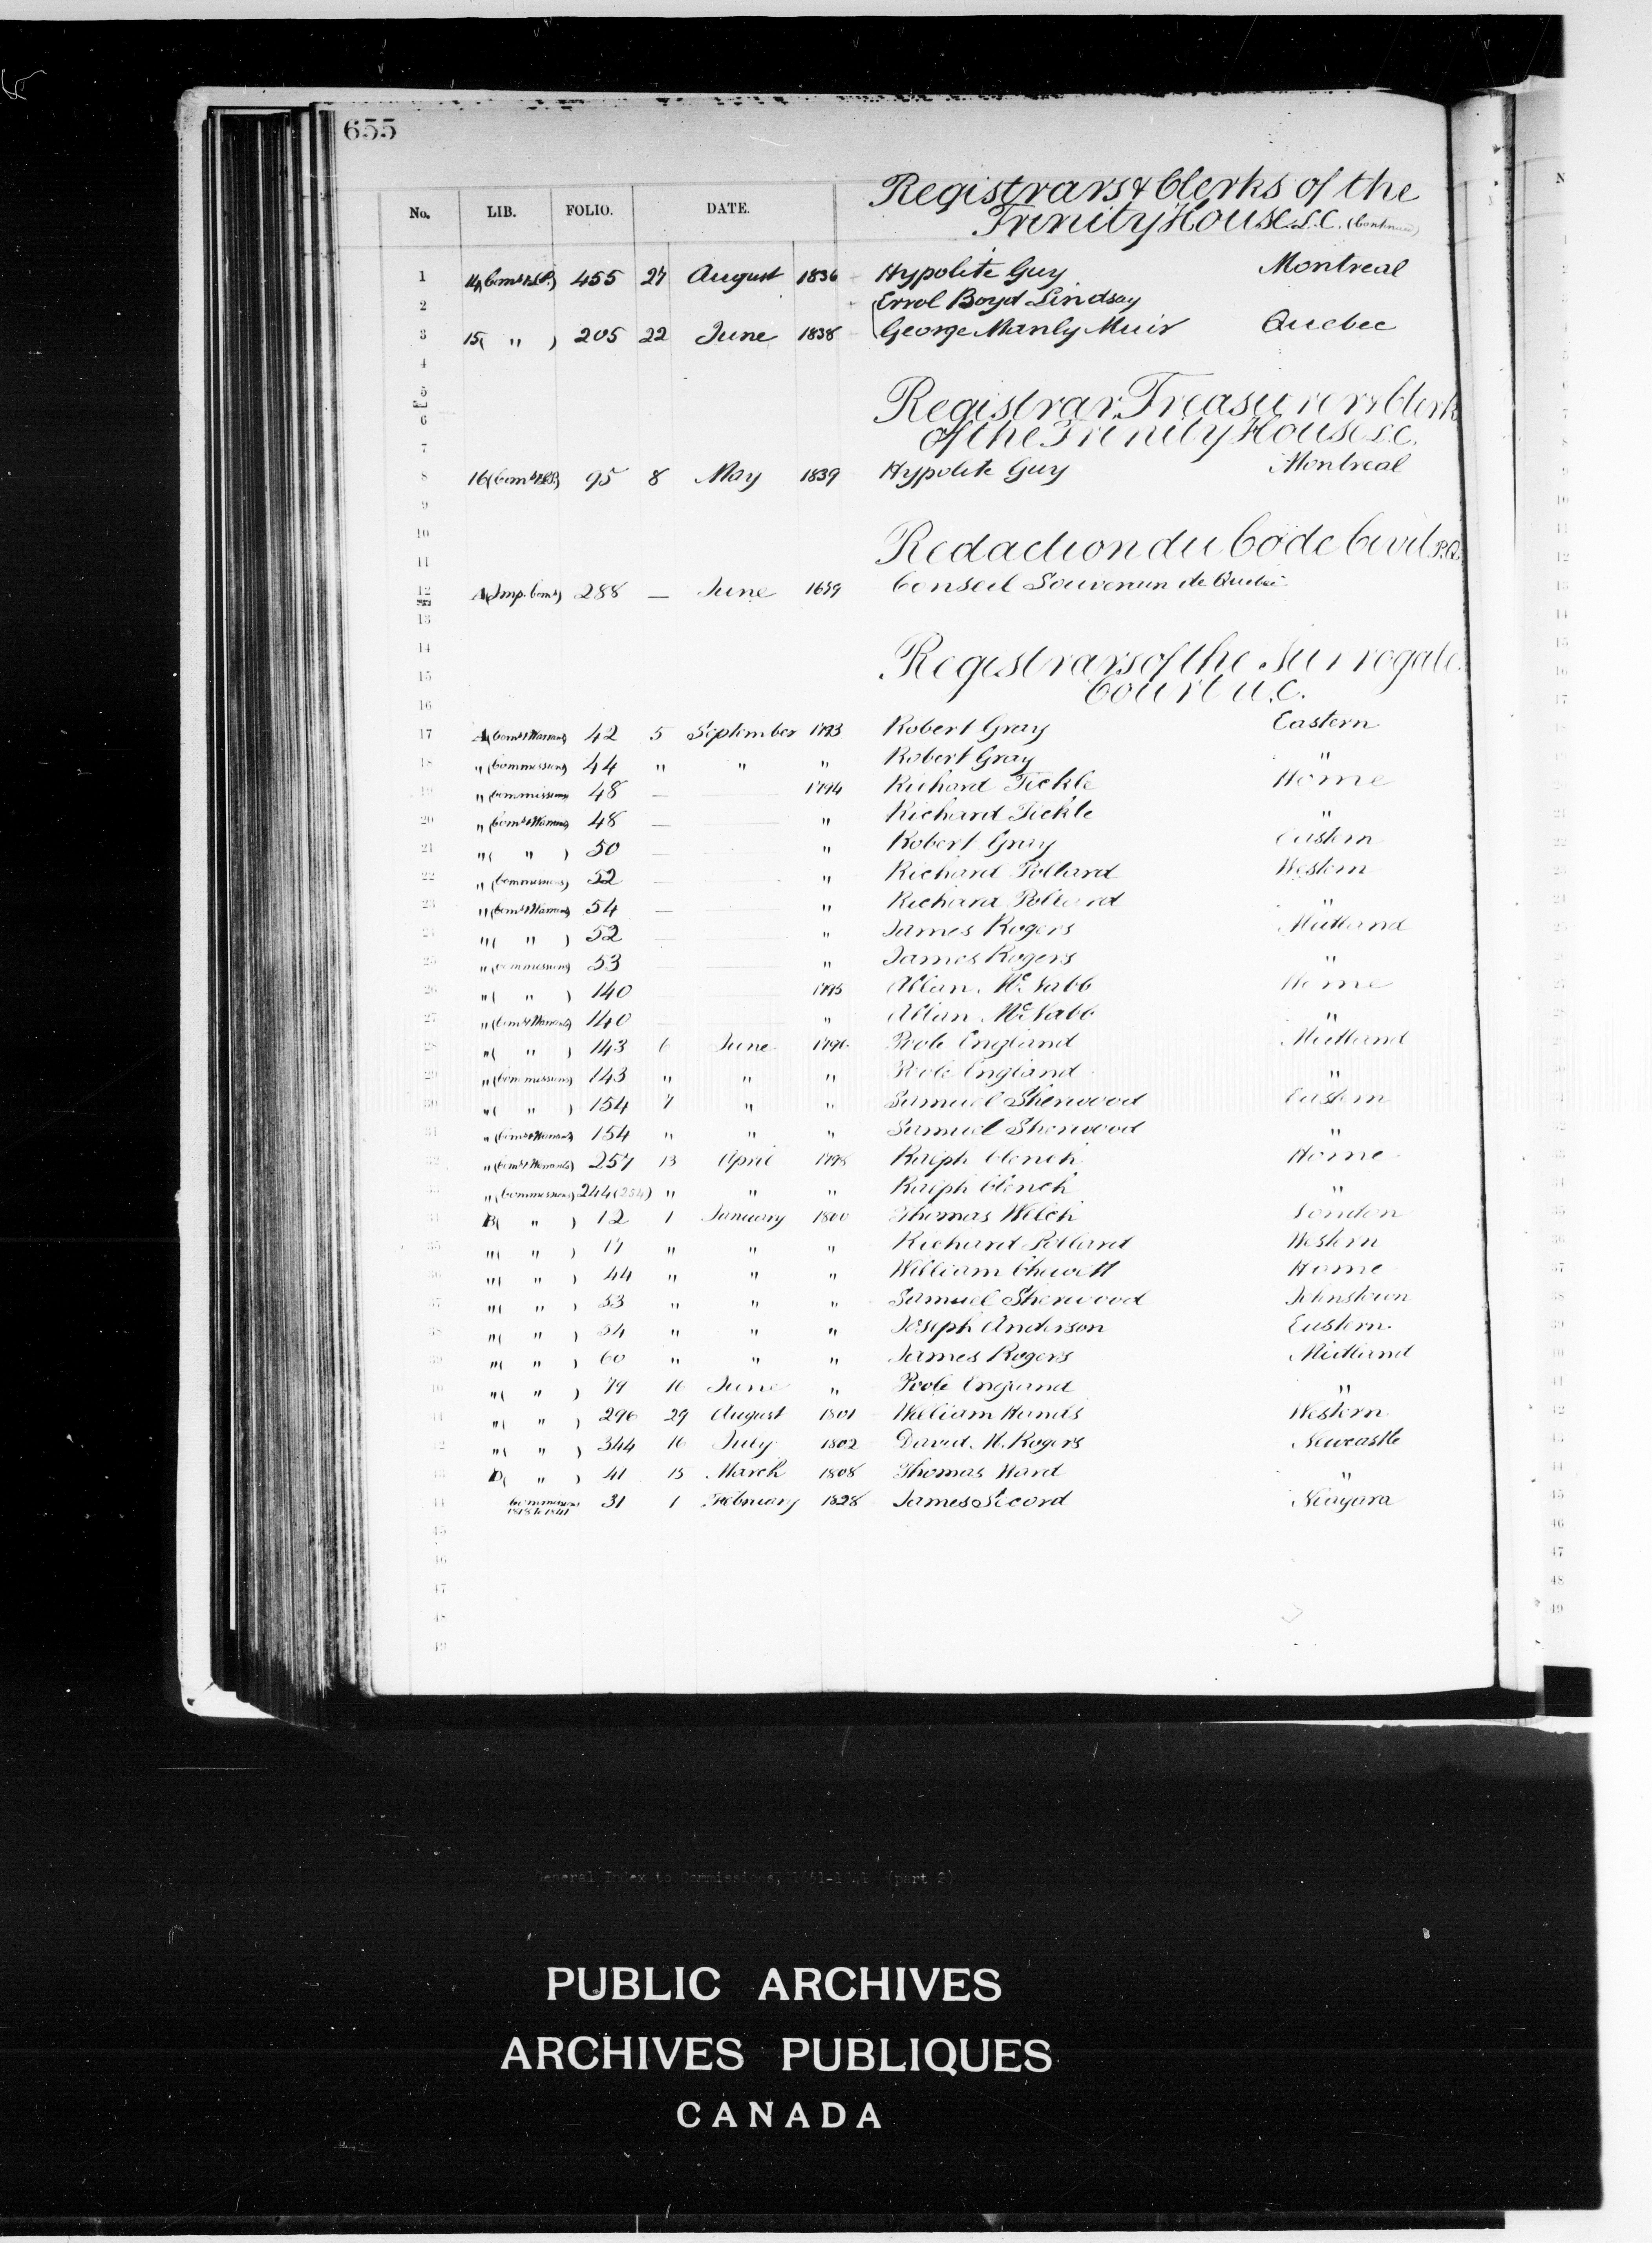 655
No. LIB. FOLIO. DATE. Registrars & Clerks of the
Trinity House L.C. (Continued)
1 14(Coms & L.P.) 455 27 August 1836 Hypolite Guy Montreal
2 Errol Boyd Lindsay
3 15( " ) 205 22 June 1838 George Manly Muir Quebec
4
5 Registrar, Treasurer & Clerk
6 of the Trinity House L.C.
7
8 16(Coms & L.P.) 95 8 May 1839 Hypolite Guy Montreal
9
10 Redaction du Code Civil P.Q.
11
12 A(Imp. Coms) 288 — June 1679 Conseil Souverain de Quebec
13
14 Registrars of the Surrogate
15 Court U.C.
16
17 A(Coms & Warrants) 42 5 September 1793 Robert Gray Eastern
18 " (Commissions) 44 " " " Robert Gray "
19 " (Commissions) 48 — 1794 Richard Tickle Home
20 " (Coms & Warrants) 48 — " Richard Tickle "
21 " ( " ) 50 — " Robert Gray Eastern
22 " (Commissions) 52 — " Richard Pollard Western
23 " (Coms & Warrants) 54 — " Richard Pollard "
24 " ( " ) 52 — " James Rogers Midland
25 " (Commissions) 53 — " James Rogers "
26 " ( " ) 140 1795 Allan McNabb Home
27 " (Coms & Warrants) 140 — " Allan McNabb "
28 " ( " ) 143 6 June 1796 Poole England Midland
29 " (Commissions) 143 " " " Poole England "
30 " ( " ) 154 7 " " Samuel Sherwood Eastern
31 " (Coms & Warrants) 154 " " " Samuel Sherwood "
32 " (Coms & Warrants) 257 13 April 1798 Ralph Clench Home
33 " (Commissions) 244 (254) " " " Ralph Clench "
34 B( " ) 12 1 January 1800 Thomas Welch London
35 " ( " ) 17 " " " Richard Pollard Western
36 " ( " ) 44 " " " William Chewett Home
37 " ( " ) 53 " " " Samuel Sherwood Johnstown
38 " ( " ) 54 " " " Joseph Anderson Eastern
39 " ( " ) 60 " " " James Rogers Midland
40 " ( " ) 79 16 June " Poole England "
41 " ( " ) 296 29 August 1801 William Hands Western
42 " ( " ) 344 16 July 1802 David M. Rogers Newcastle
43 D( " ) 41 15 March 1808 Thomas Ward "
44 Commissions 31 1 February 1828 James Secord Niagara
1818 to 1841
45
46
47
48
49
General Index to Commissions, 1651-1841 (part 2)
PUBLIC ARCHIVES
ARCHIVES PUBLIQUES
CANADA